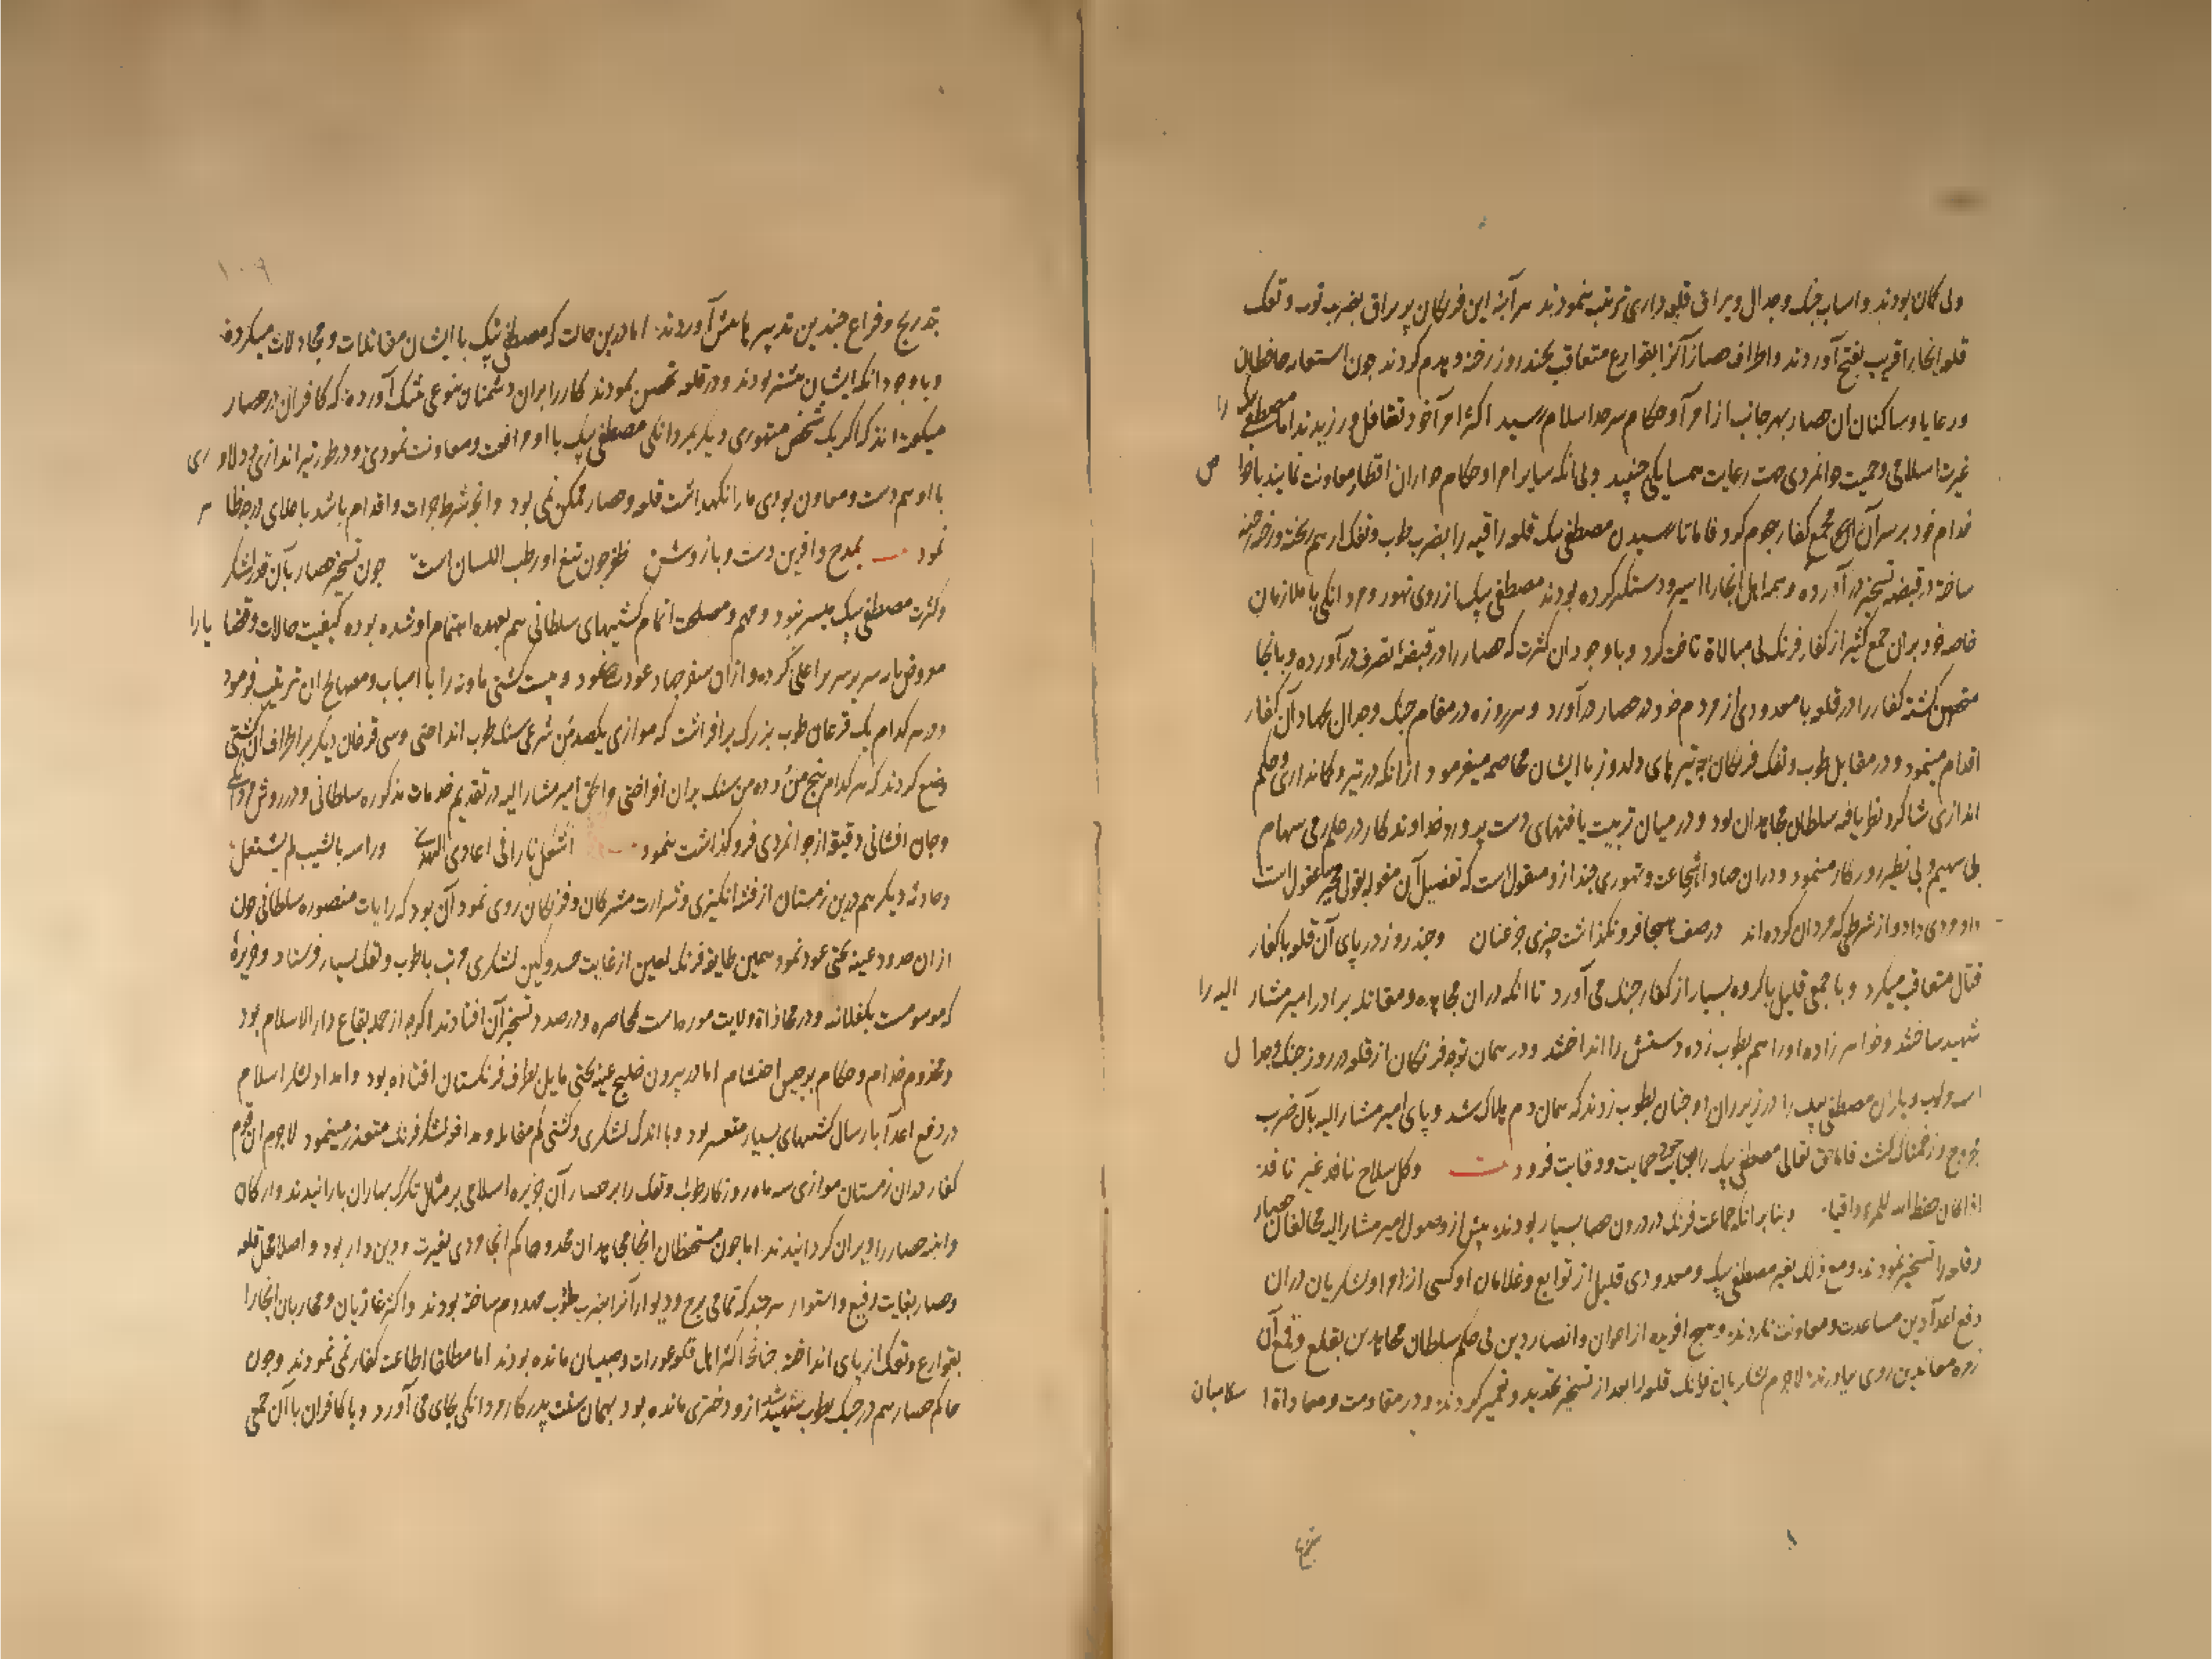 ولی کمان بودند و اسباب جنک و جدال و یراق قلعه داری ترتیب نمودند هر آینه این فرنکان پر یراق بضرب توب و تفک
قلعه انجا را قریب بفتح آوردند و اطراف حصار آنرا بقوارع متعاقب بچند روز رخنه و هدم کردند چون استعار حافظان
و رعایا و ساکنان ان حصار بهر جانب از امرآ و حکام سرحد اسلام رسید اکثر امرآ خود تغافل ورزیدند اما مصطفی بیک را
غیرت اسلامی و حمیت جوانمردی جهت رعایت همسایکی جنبید و بی انکه سایر امرا و حکام جوار ان اقطار معاونت نمایند با خواص
خدام خود بر سر آن مجمع کفار هجوم کرد فاما تا رسیدن مصطفی بیک قلعه راقیه را بضرب طوب و تفک از هم ریخته و رخنه
ساخته در قبضه تسخیر در آورده و همه اهل انجا را اسیر و دستکیر کرده بودند مصطفی بیک از روی تهور و مردانکی با ملازمان
خاصه خود بران جمع کثیر از کفار فرنک بی مبالاة تاخت کرد و باوجود ان کثرت که حصار را در قبضه تصرف در آورده و بانجا
متحصن کشته کفار را در قلعه با معدودی از مردم خود در حصار در آورد و هر روزه در مقام جنک و جدال بجهاد آن کفار
اقدام مینمود و در مقابل طوب و تفک فرنکان بتیرهای دلدوز با ایشان مخاصمه میفرمود ازانکه در تیر و کمانداری و حکم
اندازی شاکرد نظر یافه سلطان مجاهدان بود و در میان تربیت یافتهای دست پرورد خداوند کار در علم رمی سهام
بی سهیم و بی نظیر روزکار مینمود و دران جهاد شجاعت و تهوری چند ازو منقولست که تفصیل آن مقوله بقولی محیر عقول است
داد مردی داد و از شرطی که مردان کرده اند در صف هیجا فرو نکذاشت چیزی جز عنان و چند روز در پای آن قلعه با کفار
قتال متعاقب میکرد و با جمعی قلیل با کروه بسیار از کفار جنک می آورد تا انکه دران مجاهده و مقاتله برادر امیر مشار الیه را
شهید ساختند و خواهر زاده او را هم بطوب زده دستش را انداختند و در همان توجه فرنکان از قلعه در روز جنک و جدال
اسب مرکوب مصطفی بیک را در زیر ران او چنان بطوب زدند که همان دم هلاک شد و پای امیر مشار الیه بآن ضرب
مجروح و زخمناک کشت فاما حق تعالی مصطفی بیک را بجناب خود حمایت و وقایت فرمود بیت وکل سلاح نافذ غیر نافذ
اذا کان حفظ الله للمرء واقیا و بنا بر انکه جماعت فرنک در درون حصار بسیار بودند و پیش از وصول امیر مشار الیه مخالفان حصار
و قلعه را تسخیر نمودند و مع ذلک بغیر مصطفی بیک و معدودی قلیل از توابع و غلامان او کسی از امرا و لشکریان دران
دفع اعدآ دین مساعدت و معاونت نکردند و هیچ افریده از اعوان و انصار دین بی حکم سلطان مجاهدین بقلع و قمع آن
زمره معاندین روی نیاوردند لاجرم لشکریان فرنک قلعه را بعد از تسخیر تجدید و تعمیر کردند و در مقاومت و معاداة اسلامیان
بتدریج و فراغ چندین تدبیر پیش آوردند اما درین حالت که مصطفی بیک با ایشان مقاتلات و مجادلات میکرد
و باوجود انکه ایشان مستتر بودند و در قلعه تحصن نمودند کار را بران دشمنان بنوعی تنک آورده که کافران در حصار
میکفته اند که اکر یک شخص متهوری دیکر بمردانکی مصطفی بیک با او موافقت و معاونت نمودی و در طور تیر اندازی و دلاوری
با او هم دست و معاون بودی ما را نکهداشت قلعه و حصار ممکن نمی بود و انچه شرط جرات و اقدام باشد باعلای در جظاهر
نمود بیت بمدح و افرین دست و بازوش ظفر چون تیغ او رطب اللسان است چون تسخیر حصار بآن قدر لشکر
و کثرت مصطفی بیک میسر نبود و مهم و مصلحت اتمام کشتیهای سلطانی هم بعهده اهتمام او شده بوده کیفیت حالات و قضایا را
معروض پایه سریر اعلی کرده و ازان سفر جهاد عود نمود و بیست کشتی ماونه را با اسباب و مصالح ان ترتیب فرمود
و در هر کدام یک قزعان طوب بزرک برافراشت که موازی یکصد من شرعی سنک طوب انداختی و سی قزعان دیکر بر اطراف ان کشتی
وضع کردند که هر کدام پنج من و ده من سنک بران افراختی و الحق امیر مشار الیه در تقدیم خدمات مذکوره سلطانی و در روش مردانکی
و جان افشانی دقیقه از جوانمردی فرو کذاشت ننمود بیت اشعل نارا فی اعادی الهدی وراسه بالشیب لم یشتعل
و حادثه دیکر هم درین زمستان از فتنه انکیزی و شرارت مشرکان و فرنکان روی نمود آن بود که رایات منصوره سلطانی چون
ازان حدود عینه بختی عود نمود همین طایفه فرنک لعین از غایت حسد و کین لشکری مرتب با طوب و تفک بسیار فرستاد و جزیرۀ
که موسومست بکفلانه و در محاذاة ولایت موره است بمحاصره و در صدد تسخیر آن افتادند اکرچه از جمله بقاع دار الاسلام بود
و مخدوم خدام و حکام برجیس احتشام اما در بیرون خلیج عینه بختی مایل بطرف فرنکستان افتاده بود و امداد لشکر اسلام
در دفع اعدآ بارسال کشتیهای بسیار متعسر بود و با اندک لشکری و کشتی کم مقابله و مدافعه لشکر فرنک متعذر مینمود لاجرم ان قوم
کفار دران زمستان موازی سه ماه روزکار طوب و تفک را بر حصار آن جزیره اسلامی بر مثال تکرک بهاران بارانیدند و ارکان
و ابنیه حصار را ویران کردانیدند اما چون مستحفظان انجا مجاهدان مجد و حاکم انجا مردی بغیرت و دین دار بود و اصلا محل قلعه
و حصار بغایت رفیع و استوار هر چند که تمامی برج و دیوار آنرا بضرب طوب مهدوم ساخته بودند و اکثر غازیان و محاربان انجا را
بقوارع و تفک از پای انداخته چنانچه اکثر اهل قلعه عورات و صبیان مانده بودند اما مطلقا اطاعت کفار نمی نمودند و چون
حاکم حصار هم در جنک بطوب شهید شد ازو دختری مانده بود بهمان سنت پدر کار مردانکی بجای می آورد و با کافران با آن جمعی